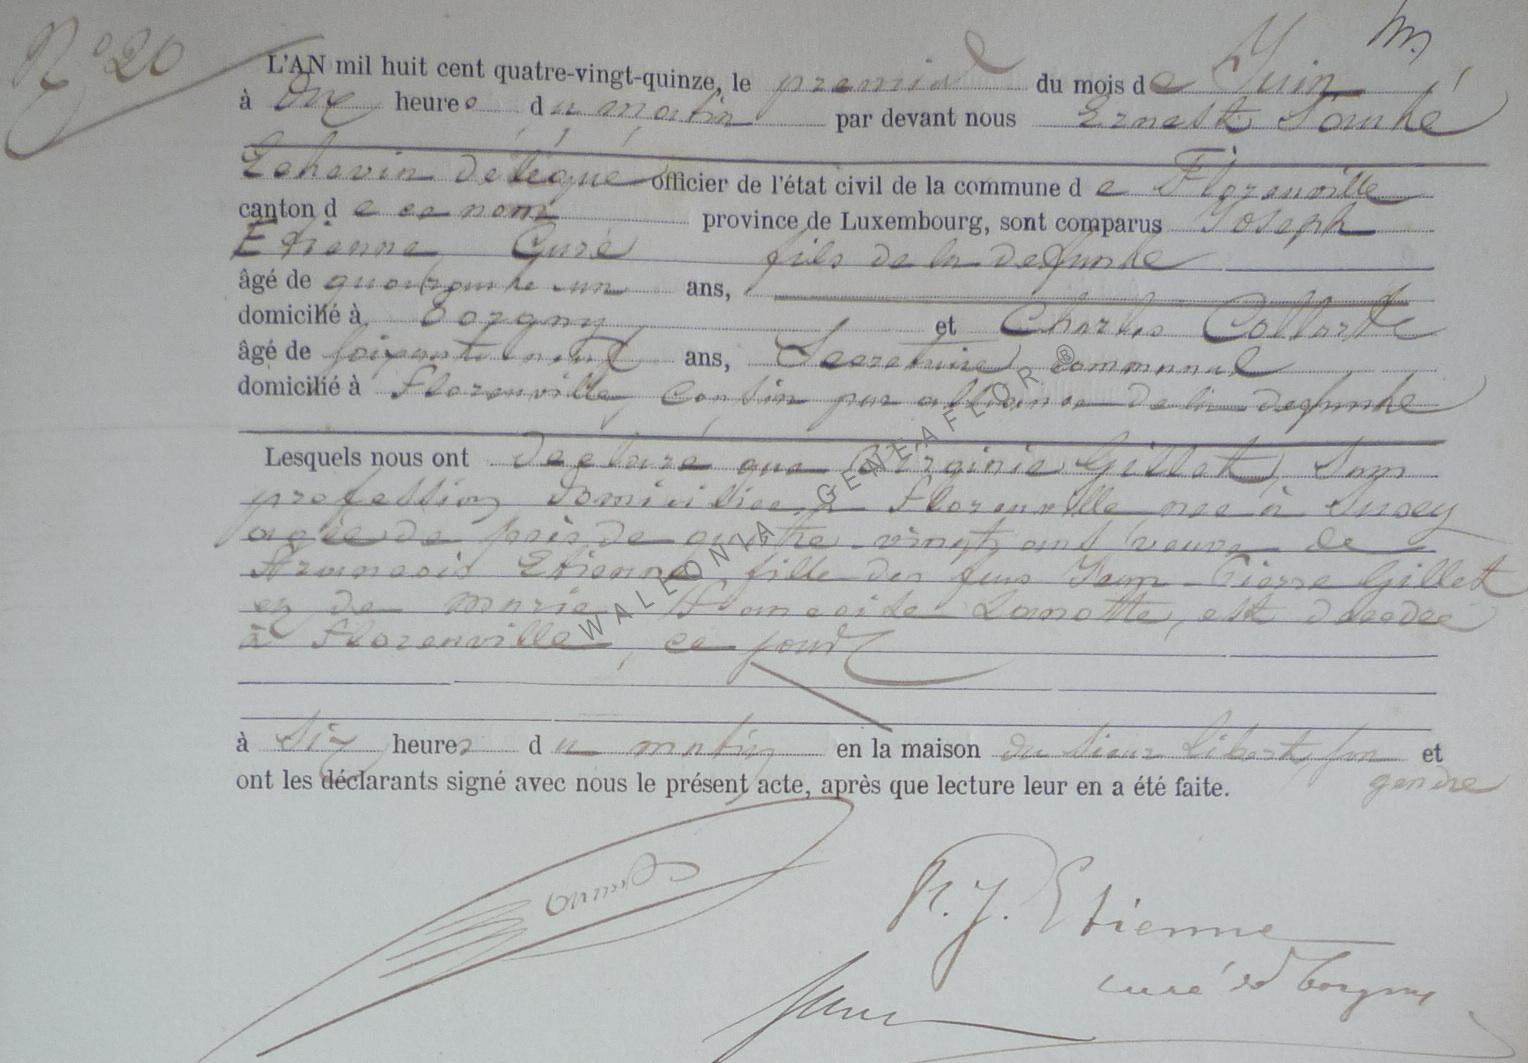 N° 20
L'AN mil huit cent quatre-vingt-quinze, le premier du mois de Juin
à onze heures du matin par devant nous Ernest
Echevin délégué officier de l'état civil de la commune de Florenville
canton de ce nom province de Luxembourg, sont comparus Joseph
Etienne Curé fils de la defunte
âgé de quarante un ans,
domicilié à Torgny et Charles Collarde
âgé de soixante neuf ans, Secretaire communal
domicilié à Florenville, Cousin par alliance de la defunte
Lesquels nous ont declaré que Virginie Gillet, Sans
profession domiciliée à Florenville née à
agée de près de quatre-vingt ans veuve de
Francois Etienne, fille des feus Jean-Pierre Gillet
et de Marie Francoise Lamotte, est decedée
à Florenville, ce jour
à six heures du matin en la maison du sieur Libert, son et
gendre
ont les déclarants signé avec nous le présent acte, après que lecture leur en a été faite.
J. Etienne
curé de Torgny
WALLONIA GENEAFLOR ®